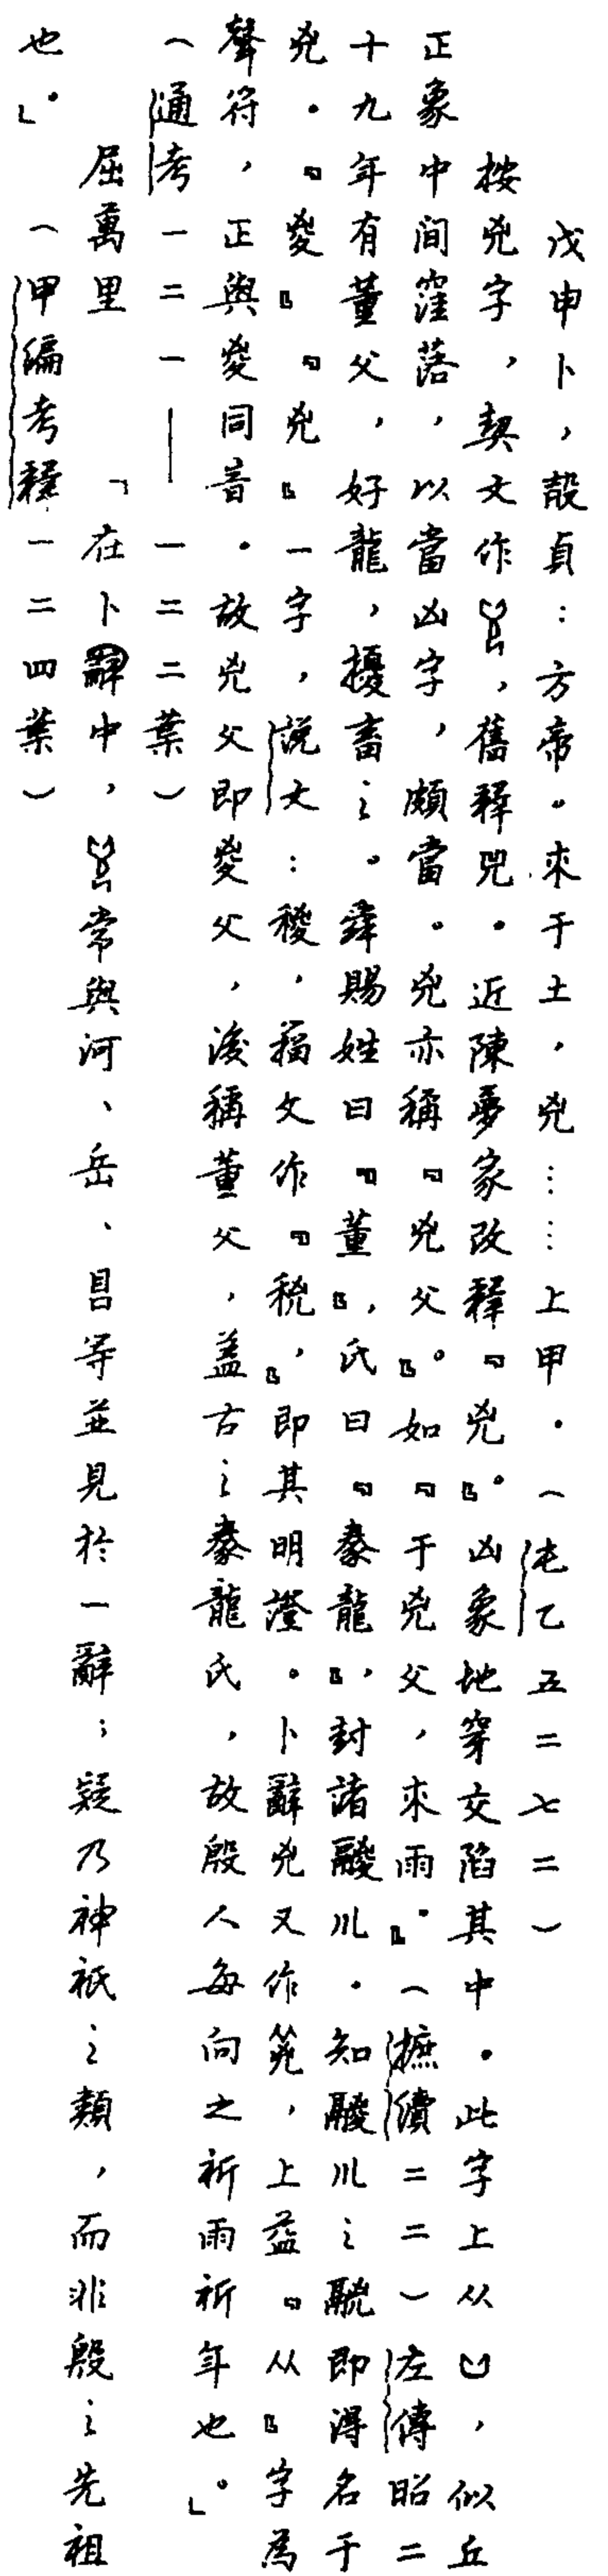 戊申卜，㱿貞：方帝。求于土，兇……上甲。（屯乙五二七二）
按兇字，契文作，舊釋兕。近陳夢家改釋『兇』。凶象地穿交陷其中。此字上从凵，似丘
正象中间窪落，以當凶字，頗當。兇亦稱『兇父』。如『于兇父，求雨』。（摭續二二）左傳昭二
十九年有董父，好龍，擾畜之。舜賜姓曰『董』，氏曰『豢龍』，封諸鬷川。知鬷川之即得名于
兇。『㚇』『兇』一字，說文：稯，籀文作『』，即其明證。卜辭兇又作，上益『从』字為
聲符，正與㚇同音。故兇父即㚇父，後稱董父，盖古之豢龍氏，故殷人每向之祈雨祈年也。」
（通考一二一——一二二葉）
屈萬里　「在卜辭中，常與河、岳、㠯等並見於一辭；疑乃神祇之類，而非殷之先祖
也。」　（甲編考釋一二四葉）